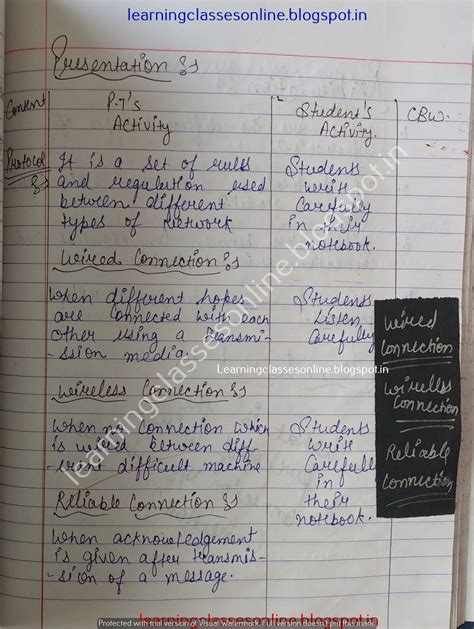 learningclassesonline.blogspot.in
Presentation :-
Content
P.T's Activity
Student's Activity.
CBW.
Protocol :-
It is a set of rules
and regulation used
between different
types of Network
Students
writ
Carefully
in their
notebook.
Wired Connection :-
When different hopes
are connected with each
other using a transmi-
ssion media.
Students
Listen
Carefully
Wired
Connection
Learningclassesonline.blogspot.in
Wireless Connection :-
Wirelless
Connection
When no connection which
is wired between diff-
rent difficult machine
Students
Writ
Carefully
in
their
notebook.
Reliable
Connection
Reliable Connection :-
When acknowledgement
is given after transmis-
sion of a message.
learningclassesonline.blogspot.in
Protected with trial version of Visual Watermark. Full version doesn't put this mark.
learningclassesonline.blogspot.in